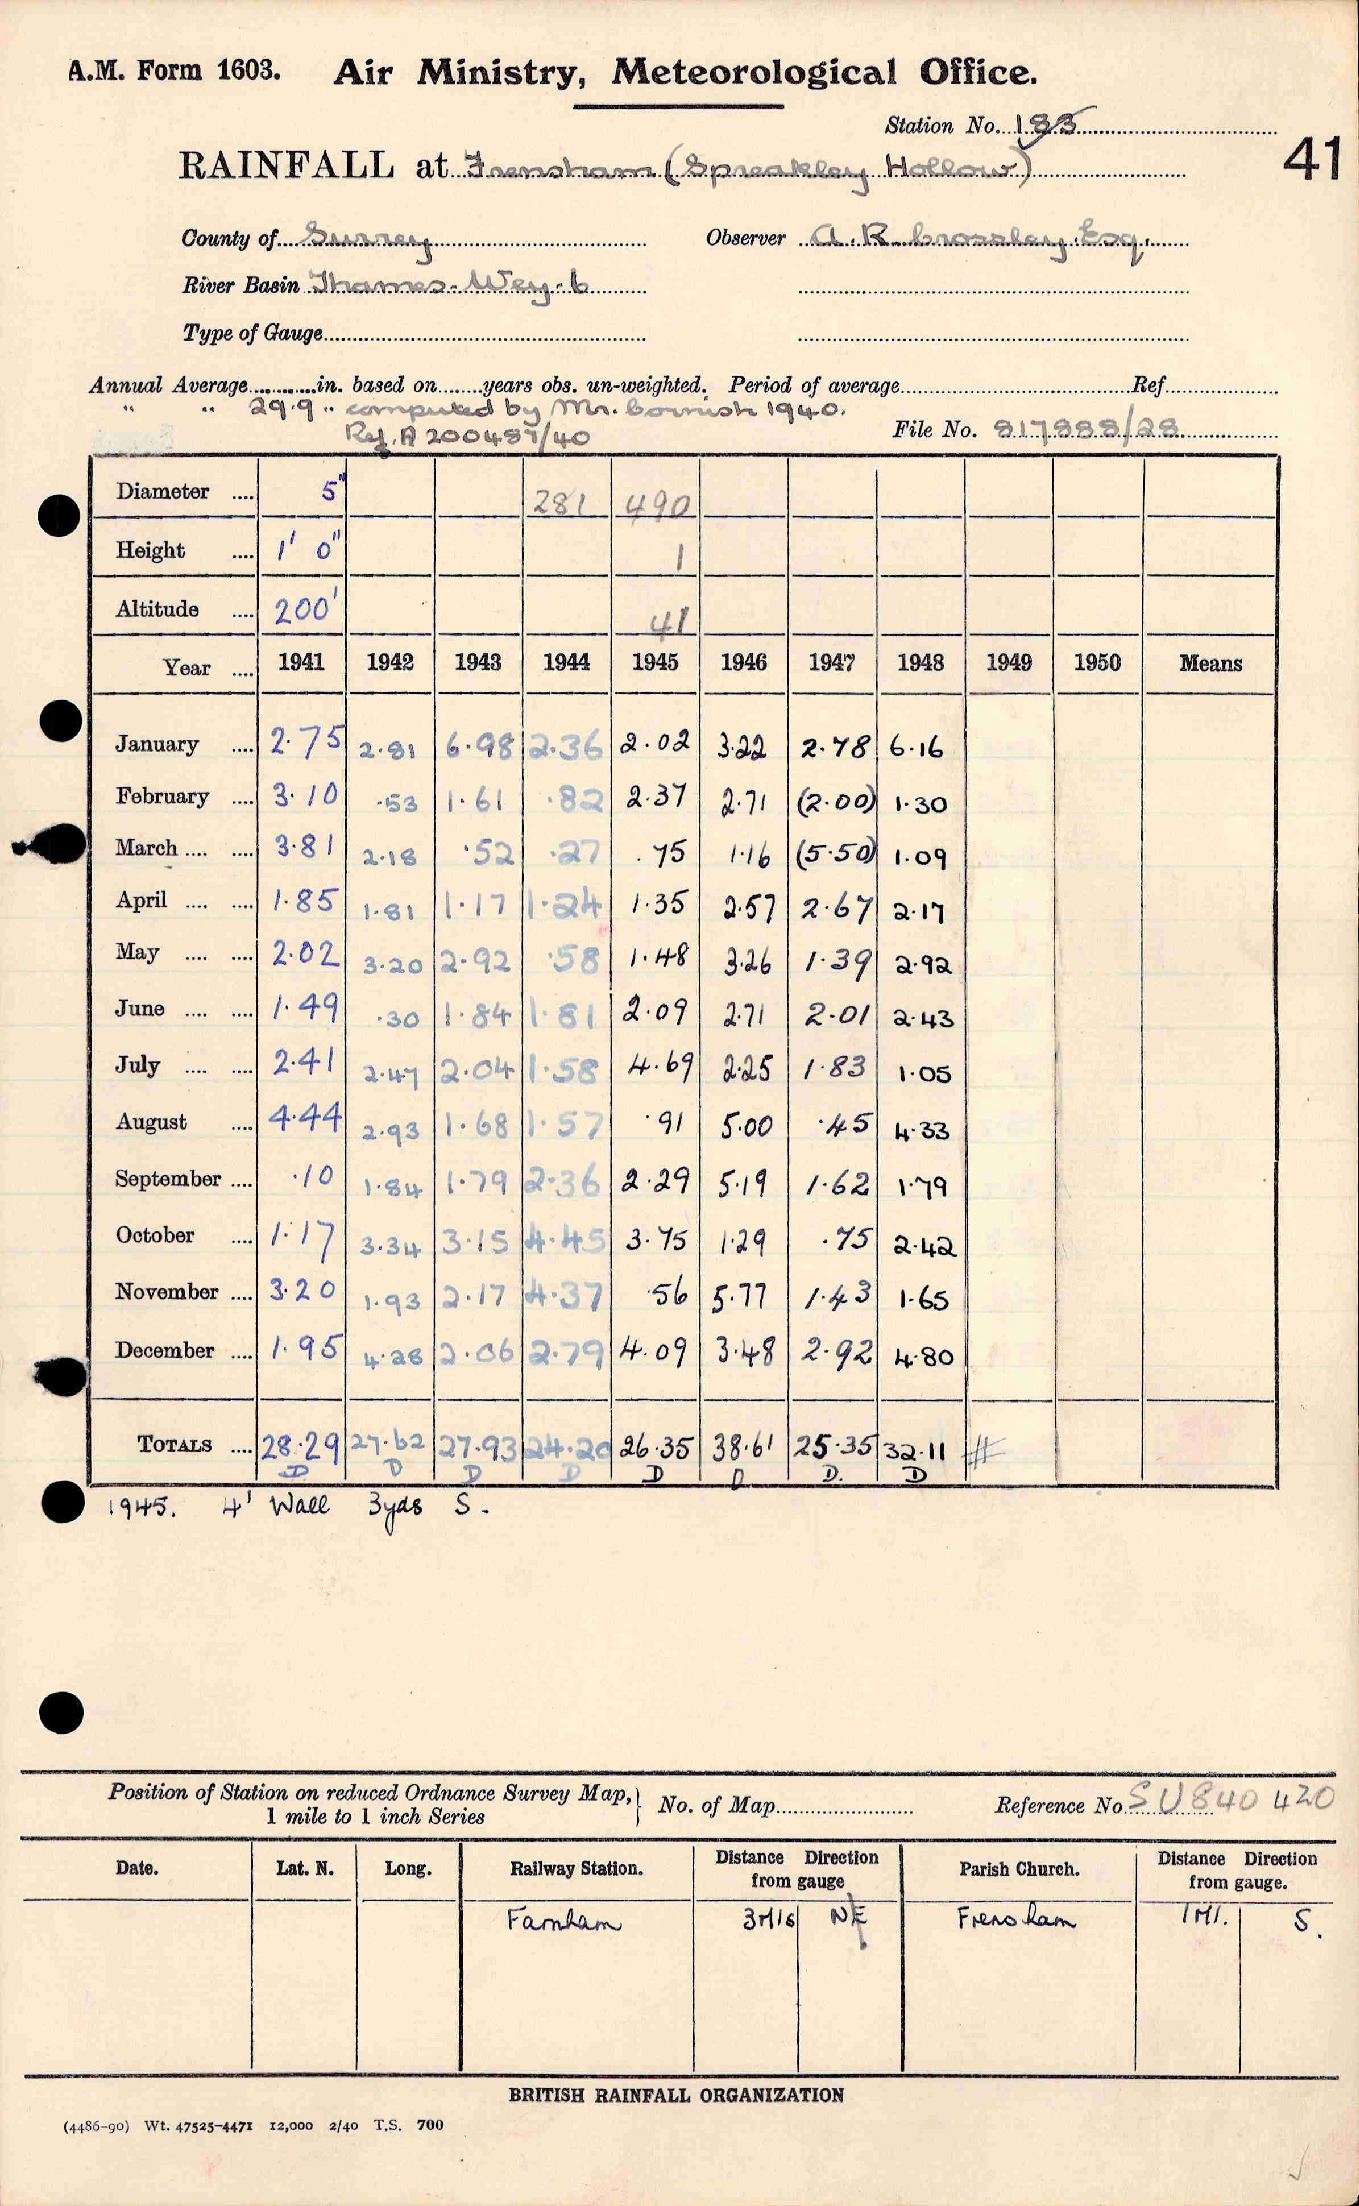 A.M. Form 1603. Air Ministry, Meteorological Office.
Station No. 183
41
RAINFALL at Frensham (Spreakley Hollow)
County of Surrey Observer A. R. Crossley, Esq.
River Basin Thames - Wey - 6
Type of Gauge
Annual Average in. based on years obs. un-weighted. Period of average Ref.
" " 29.9 " computed by Mr. Cornish 1940.
Ref. A 200487/40 File No. 817888/28
Diameter .... 5" 281 490
Height .... 1' 0" 1
Altitude .... 200' 41
Year .... 1941 1942 1943 1944 1945 1946 1947 1948 1949 1950 Means
January .... 2.75 2.81 6.98 2.36 2.02 3.22 2.78 6.16
February .... 3.10 .53 1.61 .82 2.37 2.71 (2.00) 1.30
March .... .... 3.81 2.18 .52 .27 .75 1.16 (5.50) 1.09
April .... .... 1.85 1.81 1.17 1.24 1.35 2.57 2.67 2.17
May .... .... 2.02 3.20 2.92 .58 1.48 3.26 1.39 2.92
June .... .... 1.49 .30 1.84 1.81 2.09 2.71 2.01 2.43
July .... .... 2.41 2.47 2.04 1.58 4.69 2.25 1.83 1.05
August .... 4.44 2.93 1.68 1.57 .91 5.00 .45 4.33
September .... .10 1.84 1.79 2.36 2.29 5.19 1.62 1.79
October .... 1.17 3.34 3.15 4.45 3.75 1.29 .75 2.42
November .... 3.20 1.93 2.17 4.37 .56 5.77 1.43 1.65
December .... 1.95 4.28 2.06 2.79 4.09 3.48 2.92 4.80
TOTALS .... 28.29 27.62 27.93 24.20 26.35 38.61 25.35 32.11 #
D D D D D D D. D
1945. 4' Wall 3yds S.
Position of Station on reduced Ordnance Survey Map,
1 mile to 1 inch Series
No. of Map Reference No. SU 840 420
Date. Lat. N. Long. Railway Station. Distance Direction from gauge Parish Church. Distance Direction from gauge.
Farnham 3 Mls NE Frensham 1 Ml. S.
BRITISH RAINFALL ORGANIZATION
(4486-90) Wt. 47525-4471 12,000 2/40 T.S. 700